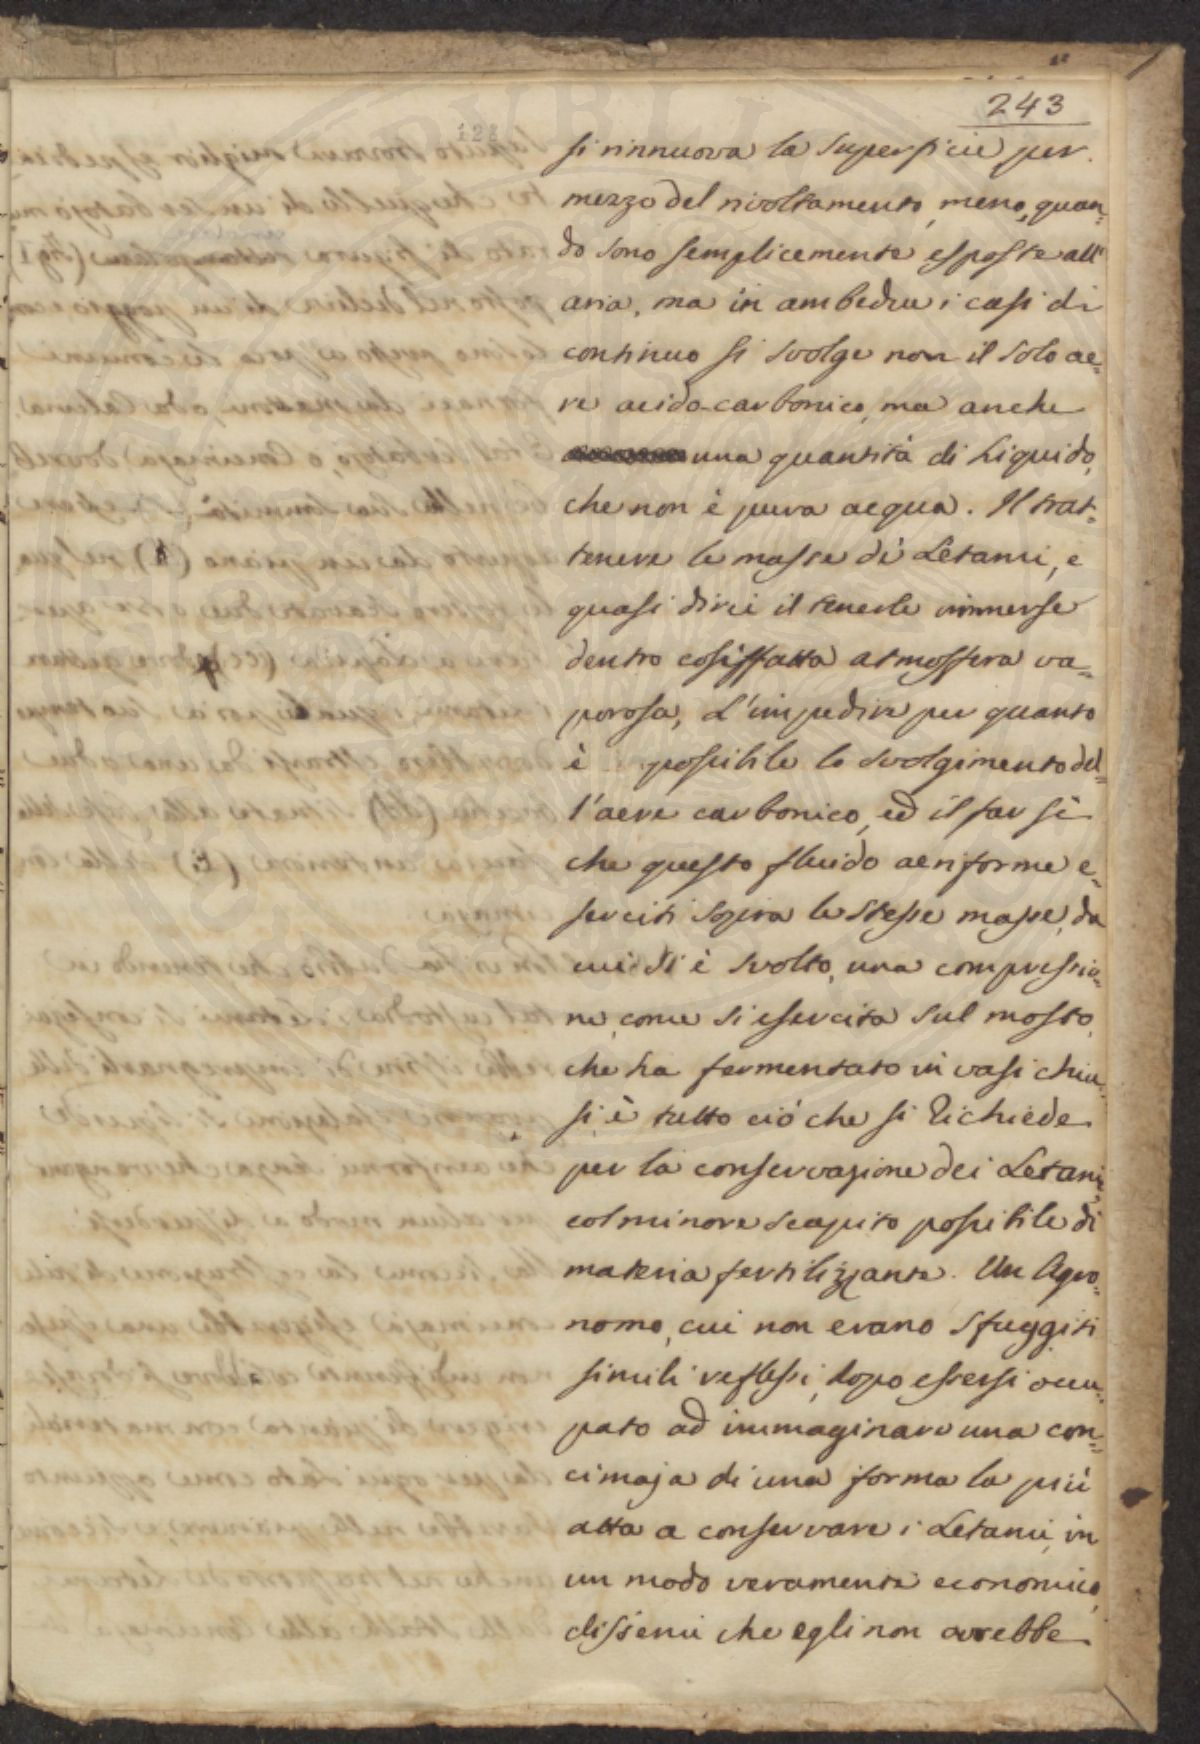 243
128
si rinnuova la superficie per
mezzo del rivoltamento, meno, quan=
do sono semplicemente esposte all'
aria, ma in ambedue i casi di
continuo si svolge non il solo ae=
re acido-carbonico, ma anche
una quantità di liquido,
che non è pura acqua. Il trat=
tenere le masse di Letami, e
quasi direi il tenerle immerse
dentro cosiffatta atmosfera va=
porosa, L'impedire per quanto
è possibile lo svolgimento del=
l'aere carbonico, ed il far sì
che questo fluido aeriforme e=
serciti sopra le stesse masse, da
cui si è svolto, una compressio=
ne, come si esercita sul mosto,
che ha fermentato in vasi chiu=
si, è tutto ciò che si richiede
per la conservazione dei Letami
col minore scapito possibile di
materia fertilizzante. Un Agro=
nomo, cui non erano sfuggiti
simili reflessi, dopo essersi occu=
pato ad immaginare una con=
cimaja di una forma la più
atta a conservare i Letami, in
un modo veramente economico,
dissemi che egli non avrebbe